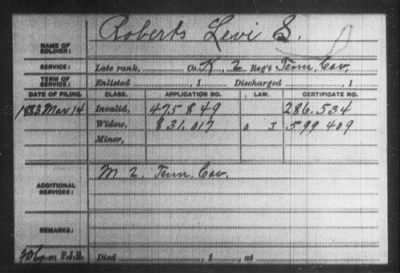 Roberts Levi S.
NAME OF SOLDIER:
SERVICE: Late rank, Co. K, 2 Reg't Tenn. Cav.
TERM OF SERVICE: Enlisted , 1 Discharged , 1
DATE OF FILING. CLASS. APPLICATION NO. LAW. CERTIFICATE NO.
1883 Mar 14 Invalid, 475849 286.534
Widow, 831.017 599409
Minor,
ADDITIONAL SERVICES: M 2. Tenn. Cav.
REMARKS:
Died , 1 , at